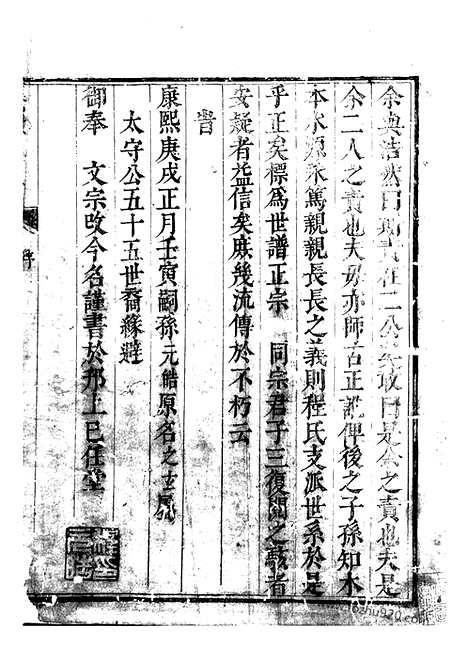 余與浩然曰助責在二公矣敢曰是余之責也夫是
余二人之責也夫毋亦師古正訛俾後之子孫知木
本水源永篤親親長長之義則程氏支派世系於是
乎正矣標為世譜正宗 同宗君子三復閱之
安疑者益信矣庶幾流傳於不朽云
旹
康熙庚戌正月壬寅嗣孫元皓原名之
太守公五十五世裔緣避
御奉 文宗改今名謹書於邗上巳任堂
序